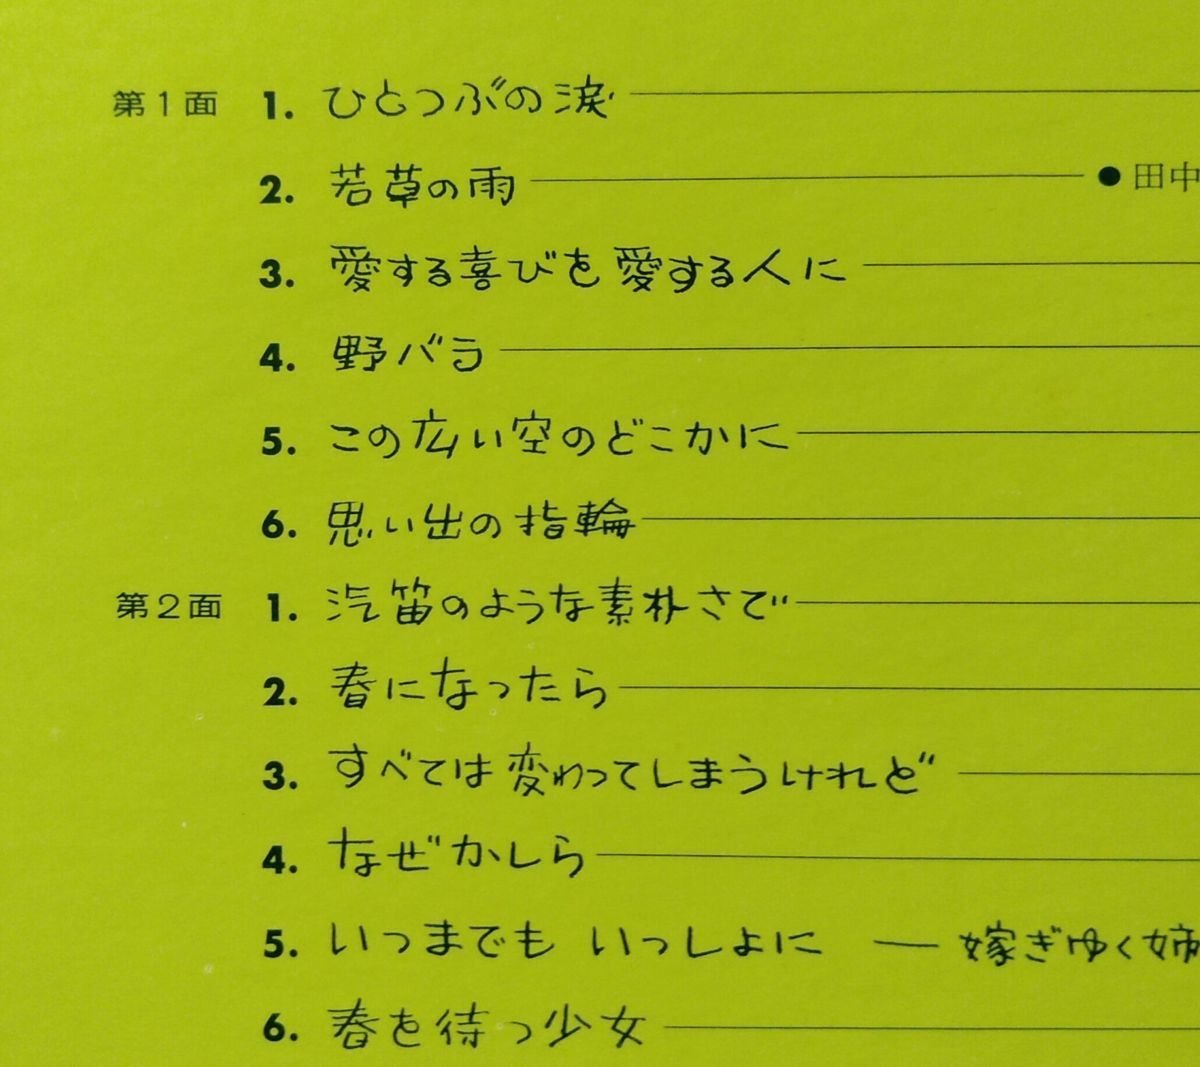 第1面 1. ひとつぶの涙
2. 若草の雨 ●田中
3. 愛する喜びを愛する人に
4. 野バラ
5. この広い空のどこかに
6. 思い出の指輪
第2面 1. 汽笛のような素朴さで
2. 春になったら
3. すべては変わってしまうけれど
4. なぜかしら
5. いつまでも いっしょに ― 嫁ぎゆく姉
6. 春を待つ少女